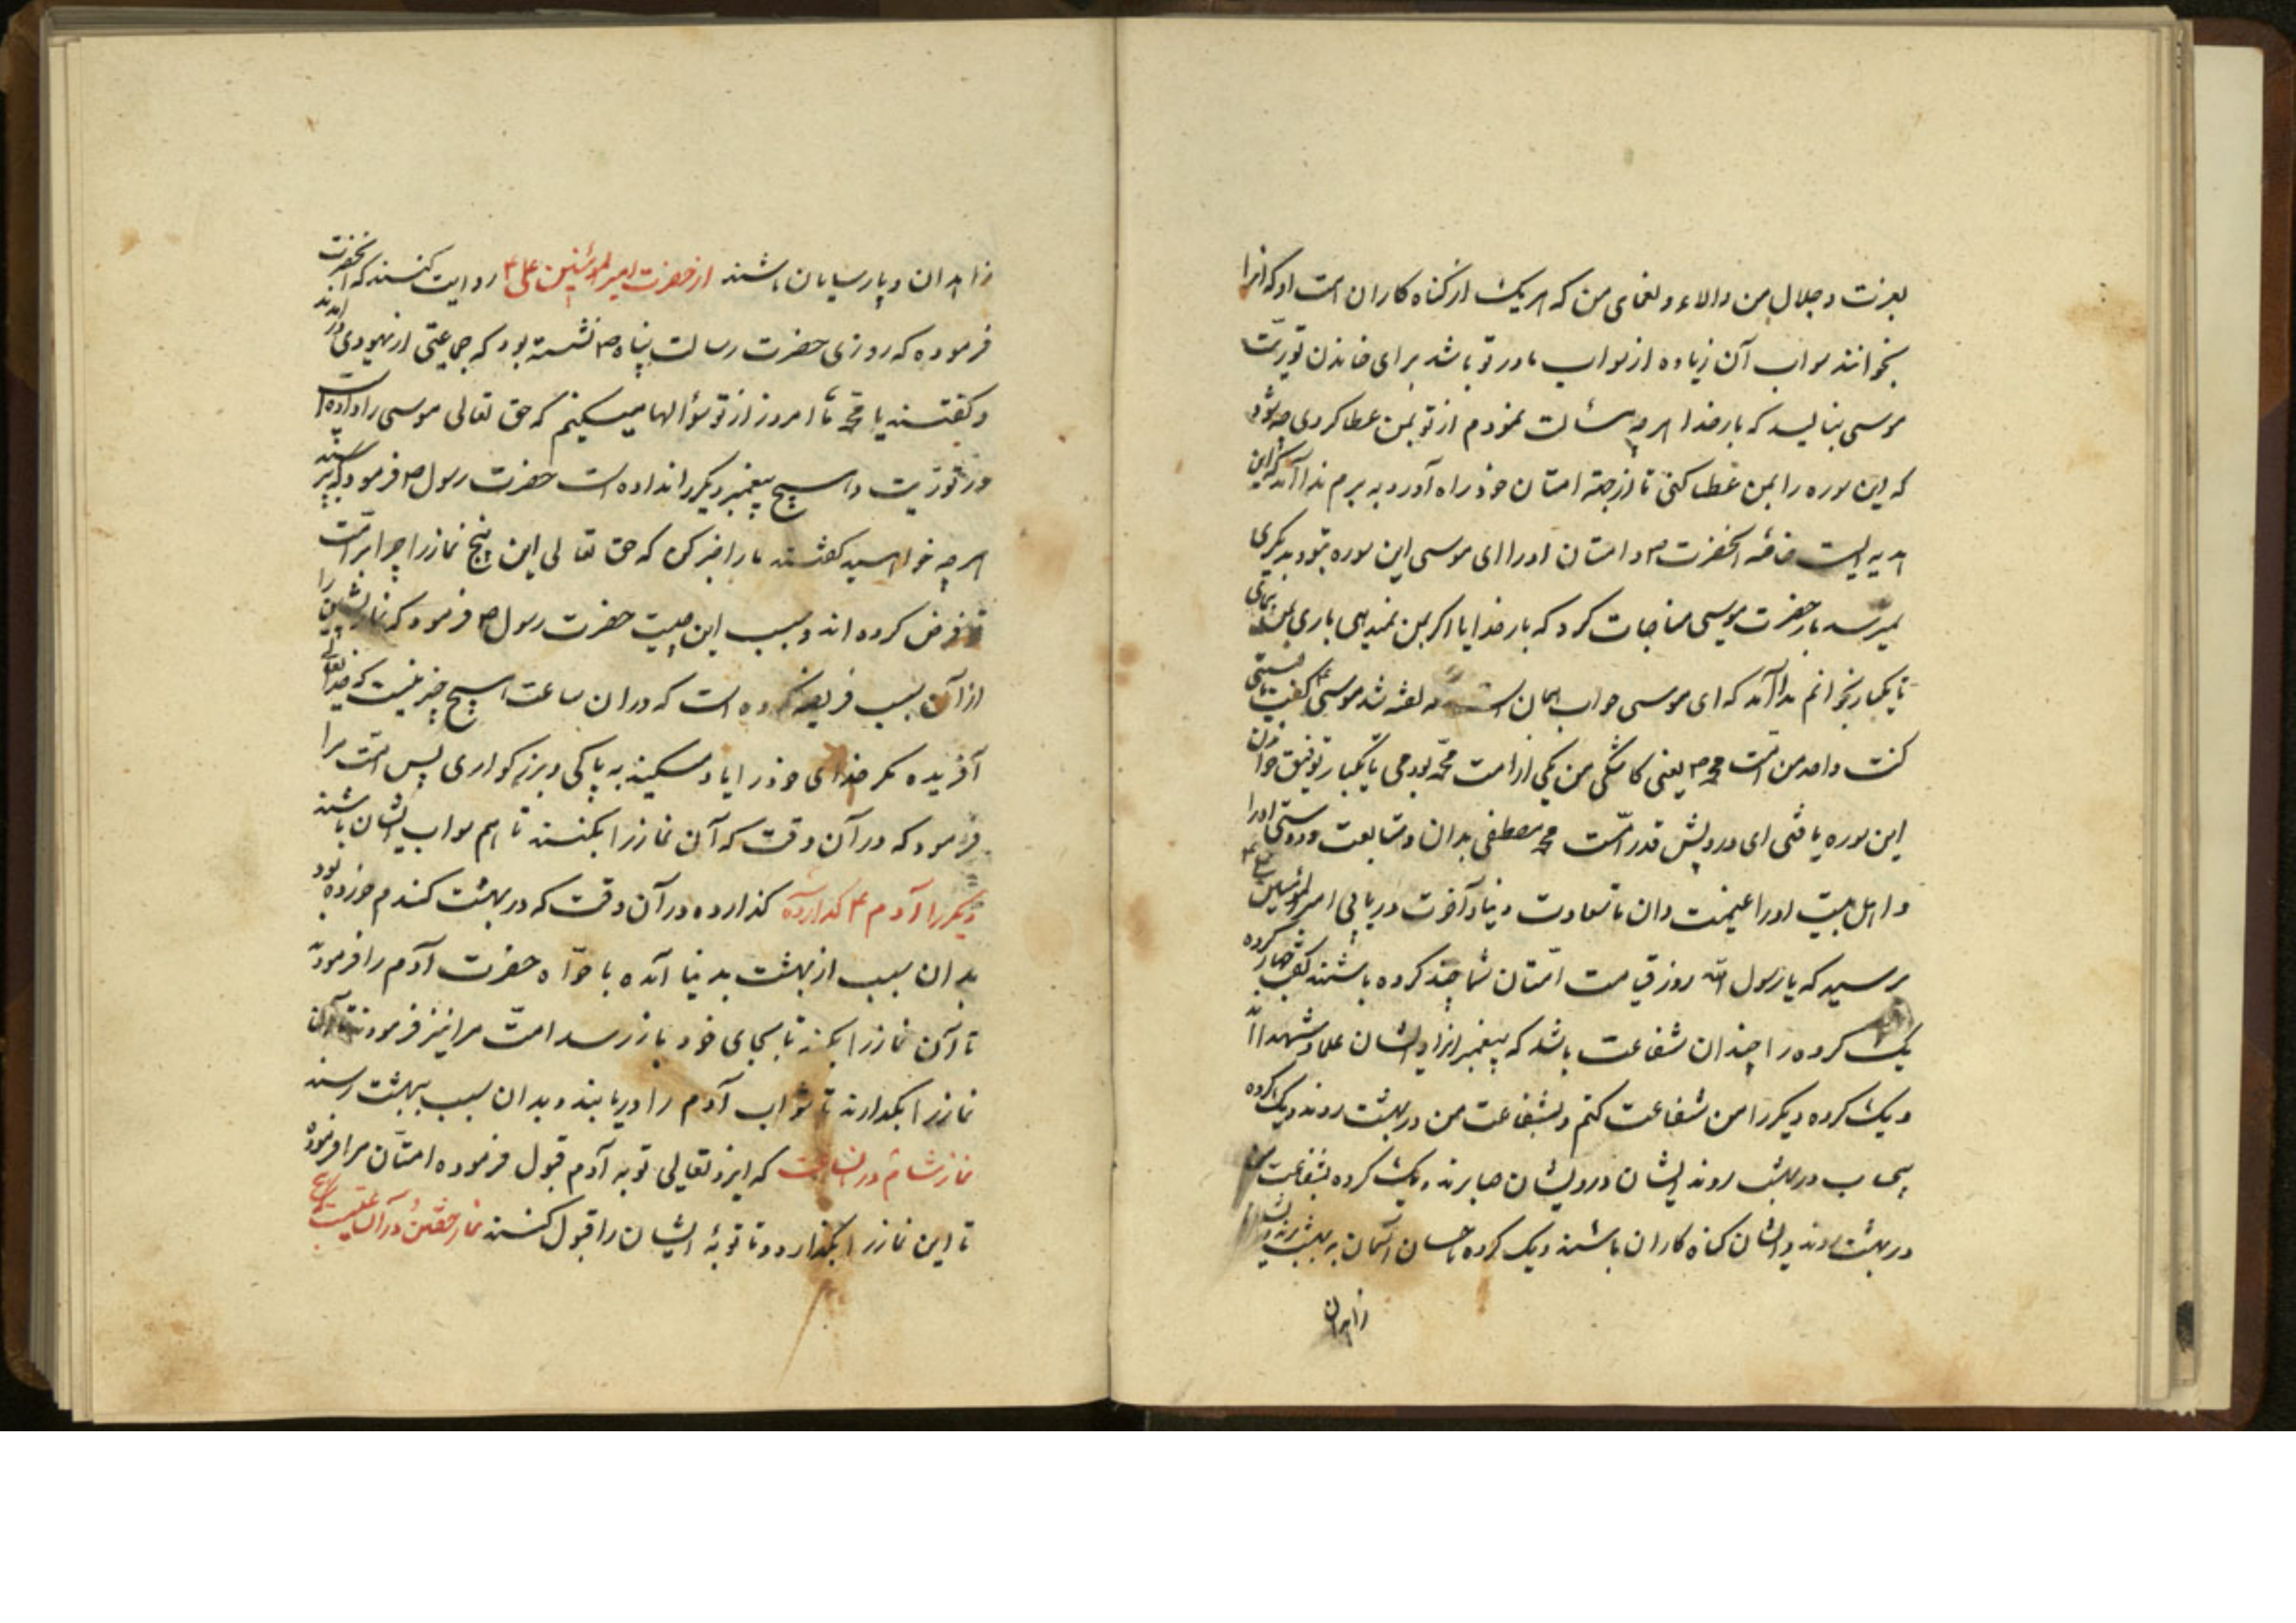 بعزت و جلال من و الاء و نعمای من که هر یک از کناه کاران امت او که انرا
بخوانند ثواب آن زیاده از ثواب مادر تو باشد برای خاندن توریت
موسی بنالید که بار خدا هر چه مسئالت نمودم از تو بمن عطا کردی چه شود
که این سوره را بمن عطا کنی تا از جهة امتان خود راه آورد به برم ندا آمد که این
هدیه ایست خاصّه آنحضرت ص و امتان او را ای موسی این سوره بتو و بدیکری
نمیرسد باز حضرت موسی مناجات کرد که بار خدایا اکر بمن نمیدهی باری بمن
تا یکبار بخوانم ندا آمد که ای موسی جواب همان است که کفته شد موسی ع کفت یا لیتنی
کنت واحد من امّت محمد ص یعنی کاشکی من یکی از امت محمّد بودمی تا یکبار توفیق خواندن
این سوره یافتمی ای درویش قدر امّت محمد مصطفی بدان و متابعت و دوستی او را
و اهل بیت او را غنیمت دان تا سعادت دنیا و آخرت دریابی امیر المؤمنین علی ع
پرسید که یا رسول الله روز قیامت امّتان شما چند کروه باشند کفت چهار کروه
یک کروه را چندان شفاعت باشد که پیغمبرانرا و ایشان علما و شهدا اند
و یک کروه دیکر را من شفاعت کنم و بشفاعت من در بهشت روند و یک کروه
بیحساب در بهشت روند ایشان درویشان صابرند و یک کروه بشفاعت من
در بهشت روند و ایشان کناه کاران باشند و یک کروه با حسان آسمان به بهشت روند و ایشان
زاهدان
زاهدان و پارسایان باشند از حضرت امیر المؤمنین علی ع روایت کنند که آنحضرت
فرموده که روزی حضرت رسالت پناه ص نشسته بود که جماعتی از یهودی در آمدند
و کفتند یا محمّد ما امروز از تو سؤالها میکنیم که حق تعالی موسی را داده است
در توریت و هیچ پیغمبر دیکر را نداده است حضرت رسول ص فرمود که بپرسید
هر چه خواهید کفتند ما را خبر کن که حق تعالی این پنج نماز را چرا بر امّت
تو فرض کرده اند و سبب این چیست حضرت رسول ص فرمود که نماز پیشین را
از آن سبب فریضه کرده است که در ان ساعت هیچ چیز نیست که خدای تعالی
آفریده مکر خدای خود را یاد میکند به پاکی و بزرکواری پس امّت مرا
فرمود که در آن وقت که آن نماز را بکنند تا هم ثواب ایشان باشند
دیکر را آدم ع کذارده کذارده در آن وقت که در بهشت کندم خورده بود
بدان سبب از بهشت بدنیا آمده با حوّاه حضرت آدم را فرمود
تا آن نماز را بکند تا بجای خود باز رسد امت مرا نیز فرمودند تا آن
نماز را بکذارند تا ثواب آدم را دریابند و بدان سبب ببهشت رسند
نماز شام در ان ساعت که ایزد تعالی توبه آدم قبول فرموده امتان مرا فرموده
تا این نماز را بکذارند تا توبهٔ ایشان را قبول کنند نماز خفتن در آن